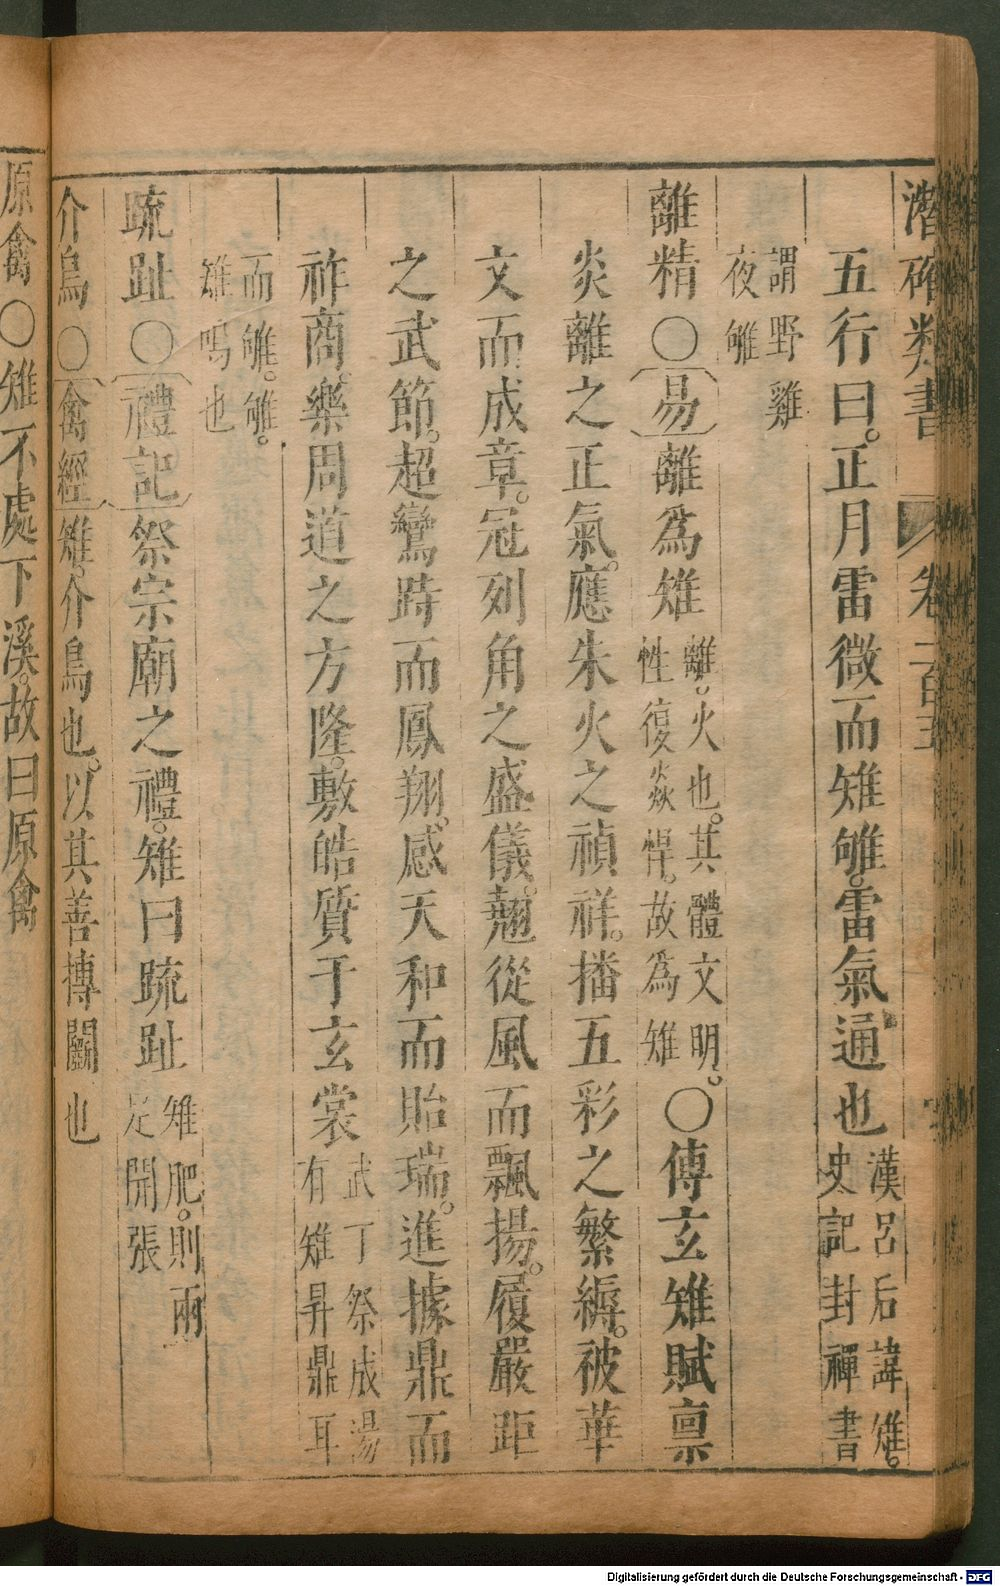 潛確類書 卷一百五
五行曰。正月雷微而雉雊。雷氣通也
漢呂后諱雉。
史記封禪書
謂野雞
夜雊
離精〇易離為雉
離。火也。其體文明。
性復焱悍。故為雉
〇傅玄雉賦禀
炎離之正氣。應朱火之禎祥。播五彩之繁縟。被華
文而成章。冠列角之盛儀。翹從風而飄揚。履嚴距
之武節。超鸞跱而鳳翔。感天和而貽瑞。進據鼎而
祚商。樂周道之方隆。敷皓質于玄裳
武丁祭成湯
有雉昇鼎耳
而雊。雊。
雉鳴也
疏趾〇禮記祭宗廟之禮。雉曰疏趾
雉肥。則兩
足開張
介鳥〇禽經雉。介鳥也。以其善搏鬬也
原禽〇雉不處下溪。故曰原禽
Digitalisierung gefördert durch die Deutsche Forschungsgemeinschaft - DFG